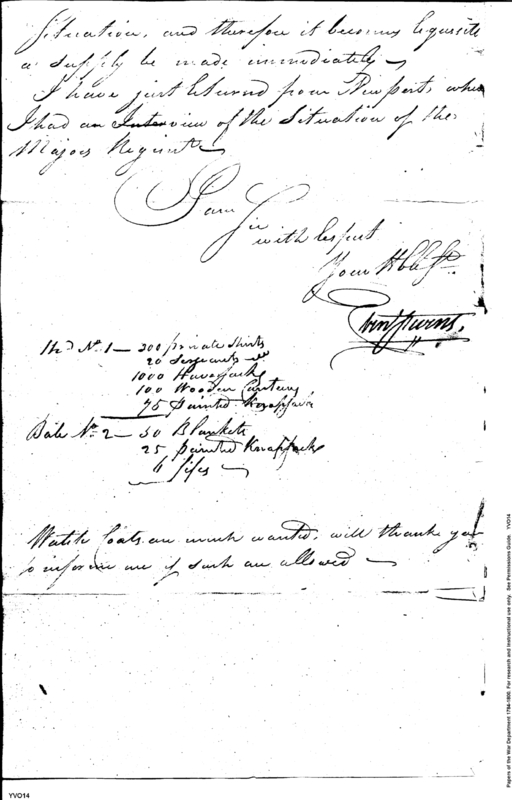 Situation, and therefore it becomes requisite
a supply be made immediately
I have just returnd from Newport, where
I had an Interview of the Situation of the
Majors Regiment
I am
Sir
with respect
Your Hble St.
Hhd No. 1 — 200 private Shirts
20 Sergeants do
1000 Haversacks
100 Wooden Canteens
75 painted Knapsacks
Bale No. 2 — 50 Blankets
25 painted Knapsacks
4 fifes
Watch Coats are much wanted, will thank you
to inform me if such are allowed
YVO14
Papers of the War Department 1784-1800. For research and instructional use only. See Permissions Guide. YVO14